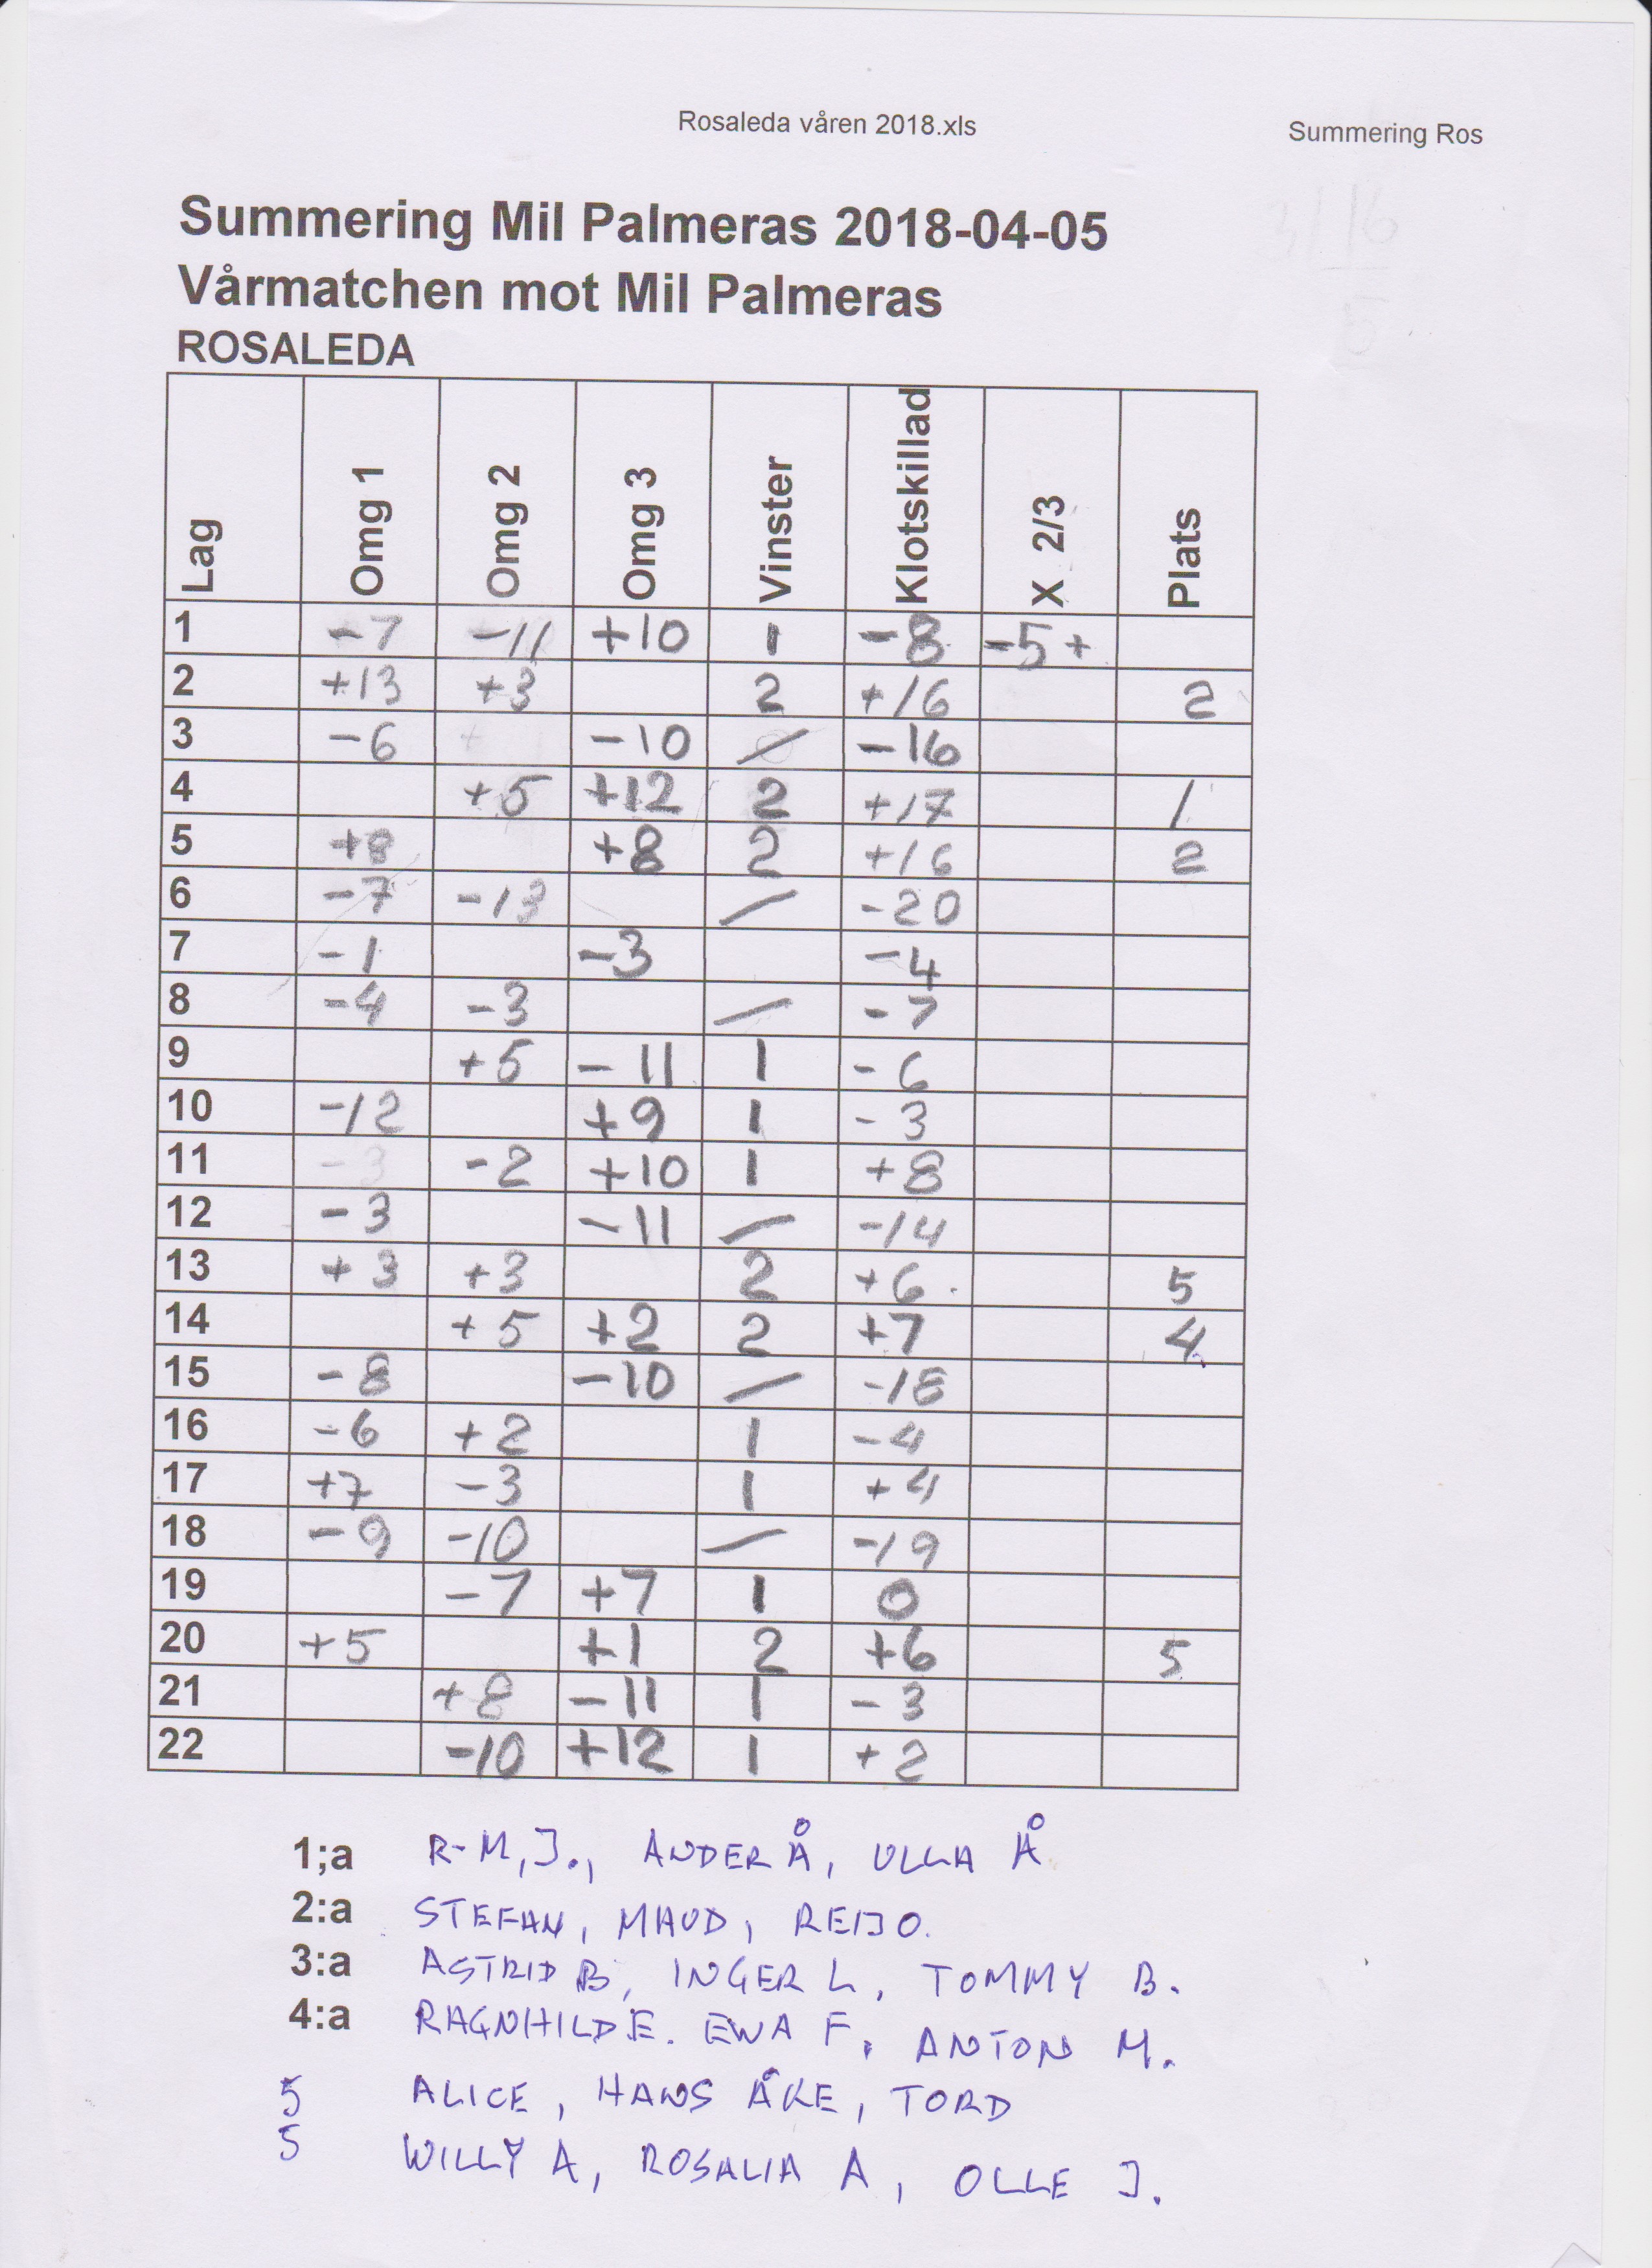 Rosaleda våren 2018.xls Summering Ros
Summering Mil Palmeras 2018-04-05
Vårmatchen mot Mil Palmeras
ROSALEDA
Lag Omg 1 Omg 2 Omg 3 Vinster Klotskillad X 2/3 Plats
1 -7 -11 +10 1 -8 -5+
2 +13 +3 2 +16 2
3 -6 -10 / -16
4 +5 +12 2 +17 1
5 +8 +8 2 +16 2
6 -7 -13 / -20
7 -1 -3 -4
8 -4 -3 / -7
9 +5 -11 1 -6
10 -12 +9 1 -3
11 -2 +10 1 +8
12 -3 -11 / -14
13 +3 +3 2 +6 5
14 +5 +2 2 +7 4
15 -8 -10 / -18
16 -6 +2 1 -4
17 +7 -3 1 +4
18 -9 -10 / -19
19 -7 +7 1 0
20 +5 +1 2 +6 5
21 +8 -11 1 -3
22 -10 +12 1 +2
1;a R-M, J., ANDER Å, ULLA Å
2:a STEFAN, MAUD, REIJO.
3:a ASTRID B, INGER L, TOMMY B.
4:a RAGNHILD E. EWA F, ANTON M.
5 ALICE, HANS ÅKE, TORD
5 WILLY A, ROSALIA A, OLLE J.